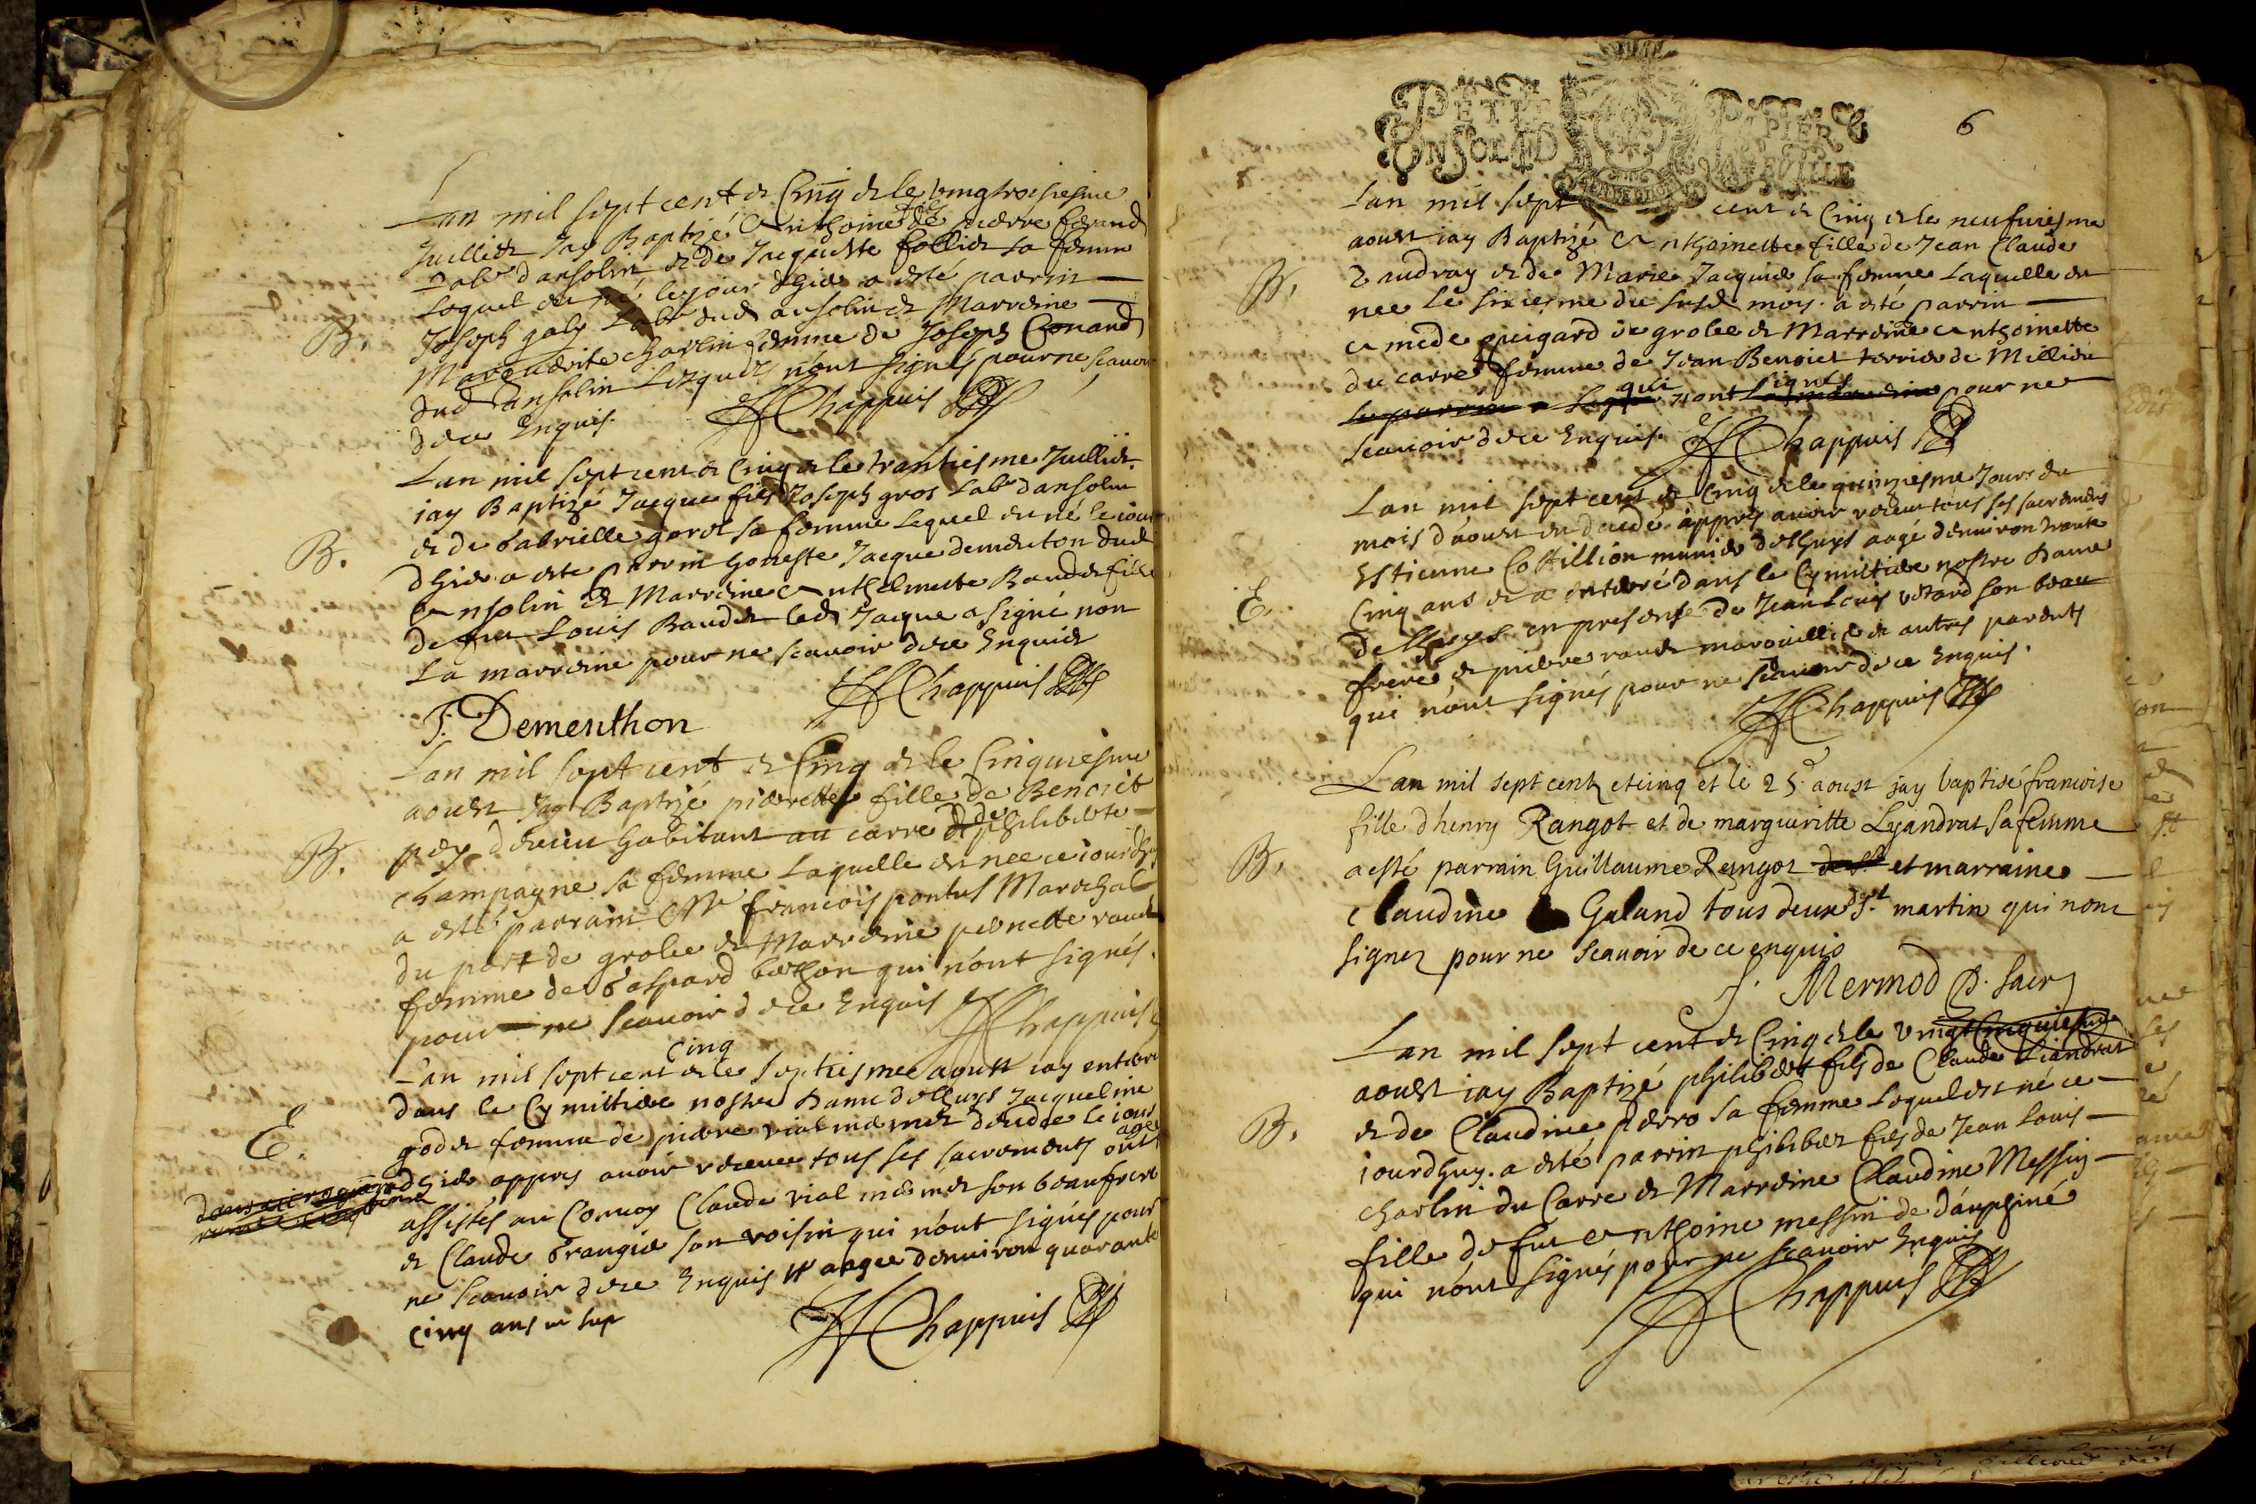 Lan mil sept cent & Cinq & le vingtroisiesme
Juillet Jay Baptizé Anthoine fils pierre ferand
Labr dansolin & de Jaquette follier sa femme
Lequel est né le jour dhier a esté parrin
Joseph galy Labr dud ansolin & Marreine
Marguerite charlin femme de Joseph Conand
dud ansolin Lesquels nont signés pour ne scavoir
B.
dece Enquis. Chappuis
Lan mil sept cent & Cinq & le trantiesme Juillet.
jay Baptizé Jacque fils Joseph gros Labr dansolin
& de gabrielle goret sa femme Lequel est né le jour
B.
dhier a este parrin honeste Jacque demeuton dud
Ansolin & Marreine Anthelmette Baudet fille
de feu Louis Baudet led Jacque a signé non
La marreine pour ne scavoir dece Enquise
Chappuis
J. Dementhon
Lan mil sept cent & Cinq & le Cinquiesme
aoust Jay Baptizé pierrette fille de Benoit
pey devieu habitant au carre & de philiberte
B.
champagne sa femme Laquelle est nee ce jourdhuy
a esté parrain Me francois pontus Marechal
du port de grolee & Marreine pernette raud
femme de gaspard berthon qui nont signés.
pour ne scavoir dece Enquis Chappuis
cinq
Lan mil sept cent & le septiesme aoust jay enterré
dans le Cymittiere nostre Dame delhuys Jacqueline
E.
godet femme de pierre vial medecin decedee le jour
dhier appres avoir receue tous ses sacrements ont
assistés au Convoy Claude vial son beaufrere
& Claude grangier son voisin qui nont signés pour
ne scavoir dece Enquis # aagee denviron quarante
cinq ans
Chappuis
PETIT PAPIER
UN SOL
6
Lan mil sept cent & Cinq & le neufviesme
aoust jay Baptizé Anthoinette fille de Jean Claude
Landray & de Marie Jacquier sa femme Laquelle est
B.
nee Le sixiesme du susd mois. a esté parrin
Amede guigard de grolee & Marreine Anthoinette
du carre femme de Jean Benoict terrier de Millieu
qui nont signés pour ne
scavoir dece Enquis. Chappuis
Lan mil sept cent & Cinq & le quinziesme Jour du
mois d'aoust est decedé appres avoir receu tous ses sacrements
Estienne Cottillion munier delhuys aagé denviron trante
E.
Cinq ans & a enterré dans le Cymittiere nostre Dame
delhuys en presence de Jean Louis vetard son beau
frere & pierre raud & autres parents
qui nont signés pour ne scavoir dece Enquis.
Chappuis
Lan mil sept cent et cinq et le 25e aoust jay baptisé francoise
fille dhenry Rangot et de margueritte Lyandrat sa femme
B.
a esté parrain Guillaume Rangot et marraine
Claudine Galand tous deux de St martin qui nont
signez pour ne scavoir de ce enquis
J. Mermod
Lan mil sept cent & Cinq & le vingt Cinquiesme
aoust jay Baptizé philibert fils de Claude Liandrat
& de Claudine perro sa femme Lequel est né ce
B.
jourdhuy. a esté parrin philibert fils de Jean Louis
charlin du Carre & Marreine Claudine Messin
fille de feu Anthoine messin de dauphiné
qui nont signés pour ne scavoir Enquis
Chappuis